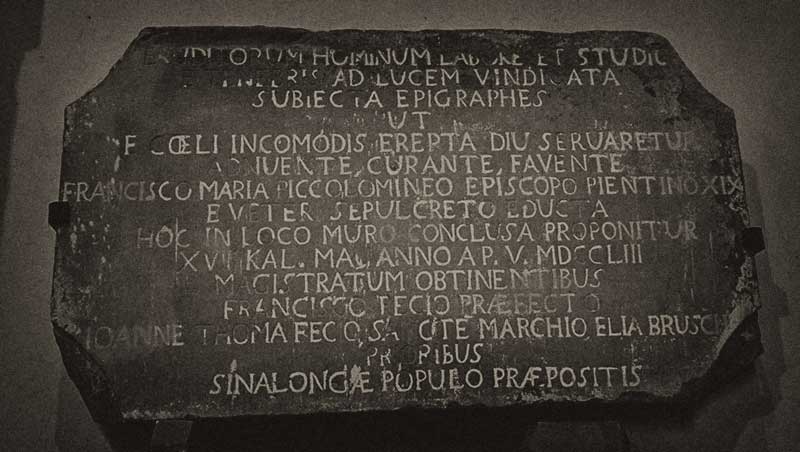 ERUDITORUM HOMINUM LABORE ET STUDIO
AD LUCEM VINDICATA
SUBIECTA EPIGRAPHES
UT
E CŒLI INCOMODIS EREPTA DIU SERUARETUR
ADNUENTE, CURANTE, FAVENTE
FRANCISCO MARIA PICCOLOMINEO EPISCOPO PIENTINO XIX
E VETERI SEPULCRETO EDUCTA
HOC IN LOCO MURO CONCLUSA PROPONITUR
KAL. MAII ANNO A P. V. MDCCLIII
MAGISTRATUM OBTINENTIBUS
FRANCISCO TECIO PRÆFECTO
IOANNE THOMA MARCHIO, ELIA BRUSCHI
PRIORIBUS
SINALONGÆ POPULO PRÆPOSITIS